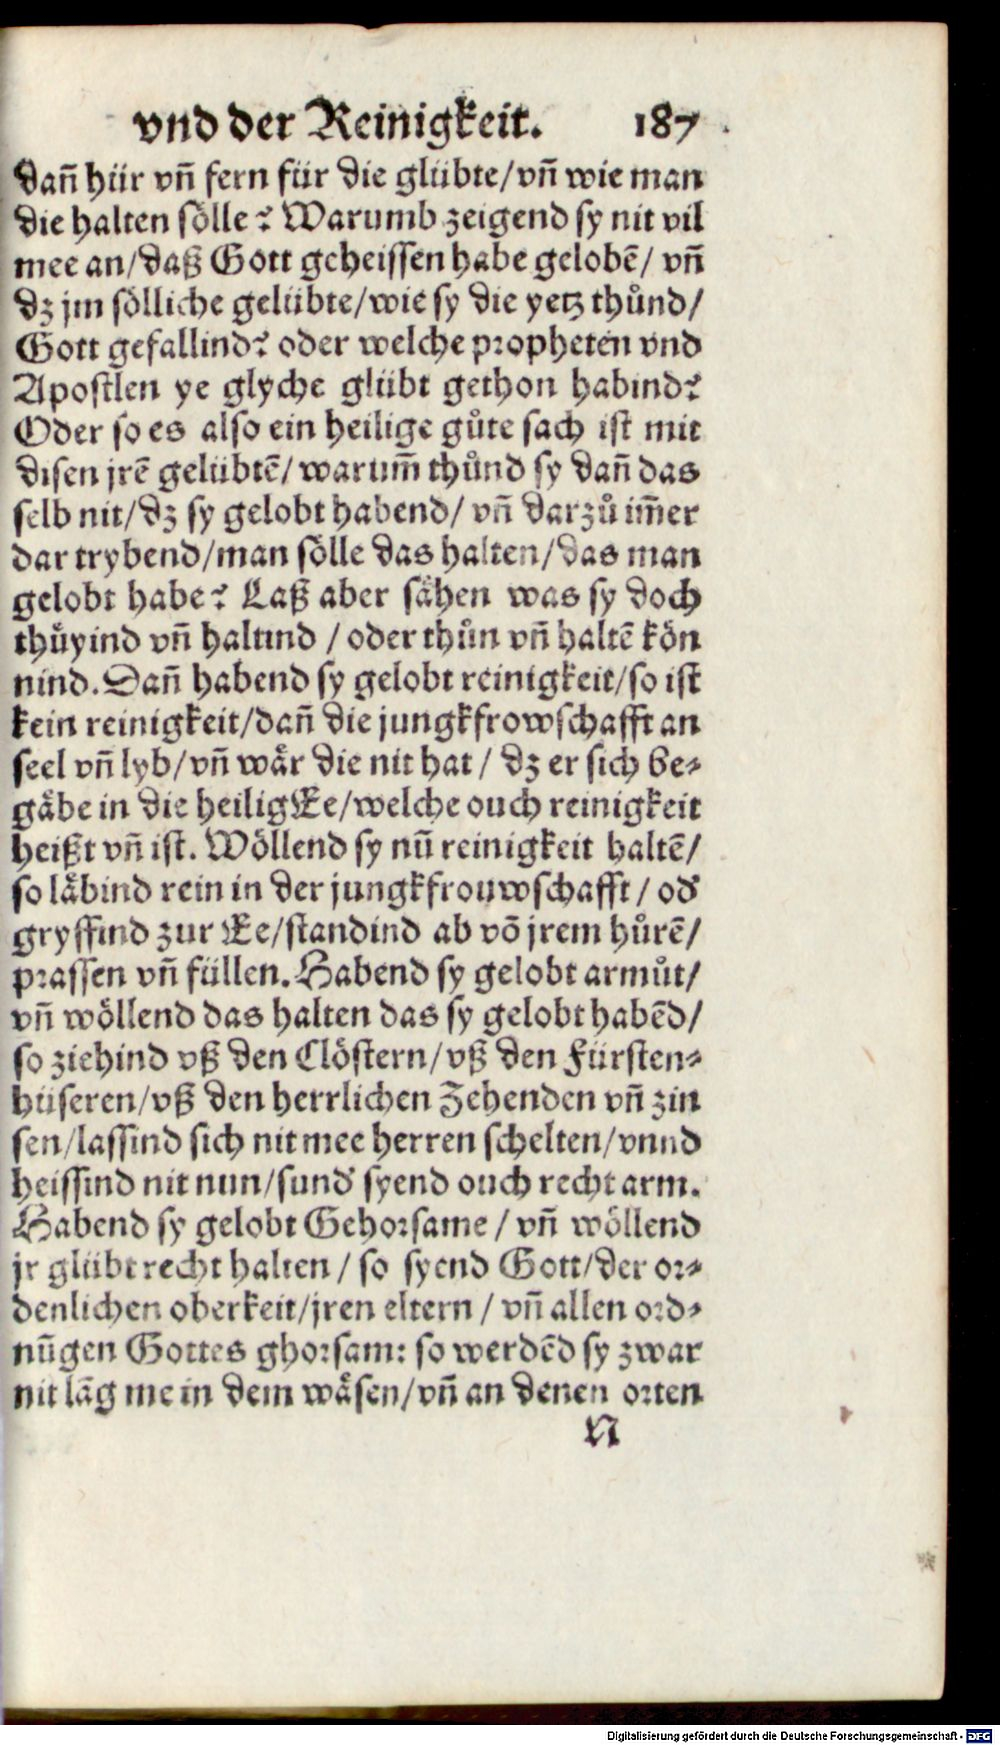 vnd der Reinigkeit. 187
dañ hür vñ fern für die glübte/vñ wie man
die halten sölle? Warumb zeigend sy nit vil
mee an/daß Gott geheissen habe gelobē/ vñ
dz jm sölliche gelübte/wie sy die yetz thůnd/
Gott gefallind? oder welche propheten vnd
Apostlen ye glyche glübt gethon habind?
Oder so es also ein heilige gůte sach ist mit
disen jrē gelübtē/ warum̃ thůnd sy dañ das
selb nit/dz sy gelobt habend/ vñ darzů im̃er
dar trybend/man sölle das halten/das man
gelobt habe? Laß aber sähen was sy doch
thüyind vñ haltind / oder thůn vñ haltē kön
nind. Dañ habend sy gelobt reinigkeit/so ist
kein reinigkeit/dañ die jungkfrowschafft an
seel vñ lyb/vñ wår die nit hat / dz er sich be⸗
gåbe in die heilig Ee/welche ouch reinigkeit
heißt vñ ist. Wöllend sy nū reinigkeit haltē/
so låbind rein in der jungkfrouwschafft / od'
gryffind zur Ee/standind ab vō jrem hůrē/
prassen vñ füllen. Habend sy gelobt armůt/
vñ wöllend das halten das sy gelobt habēd/
so ziehind vß den Clöstern/vß den Fürsten⸗
hüseren/vß den herrlichen Zehenden vñ zin
sen/lassind sich nit mee herren schelten/vnnd
heissind nit nun/sund' syend ouch recht arm.
Habend sy gelobt Gehorsame / vñ wöllend
jr glübt recht halten / so syend Gott/der or⸗
denlichen oberkeit/jren eltern / vñ allen ord⸗
nūgen Gottes ghorsam: so werdēd sy zwar
nit lāg me in dem wåsen/vñ an denen orten
N
Digitalisierung gefördert durch die Deutsche Forschungsgemeinschaft - DFG